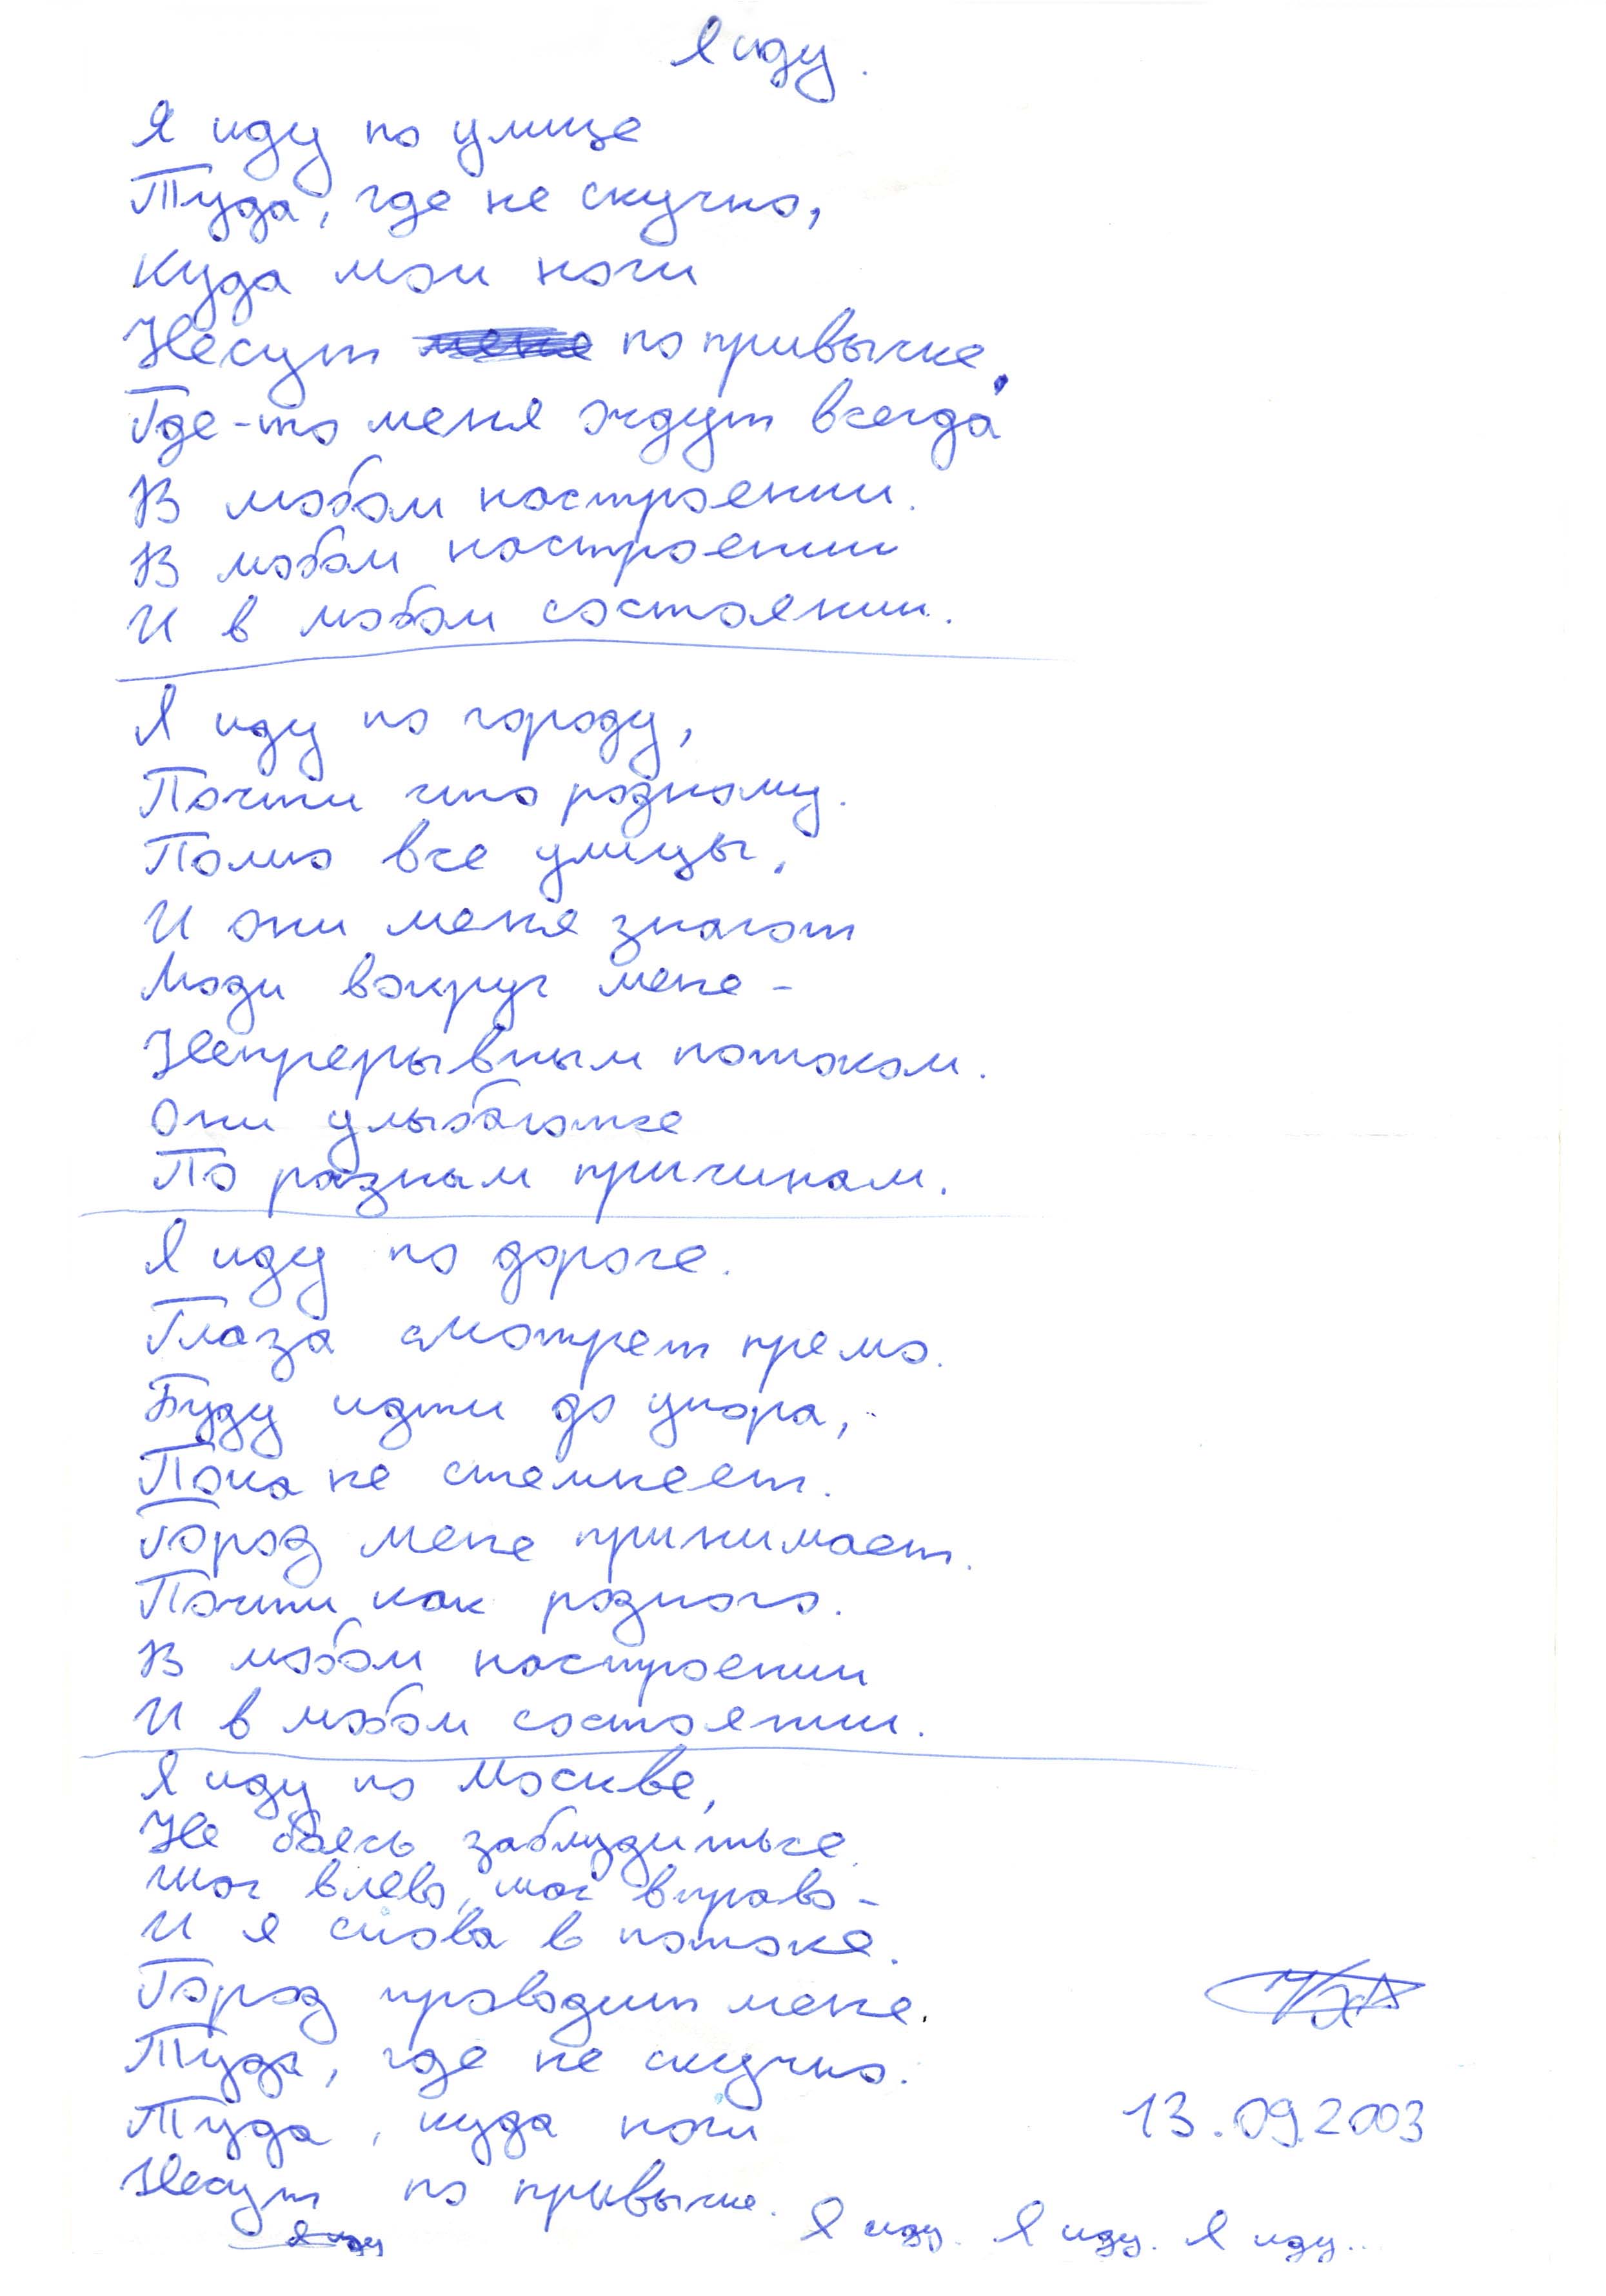 Я иду.
Я иду по улице
Туда, где не скучно,
Куда мои ноги
Несут меня по привычке.
Где-то меня ждут всегда
В любом настроении.
В любом настроении
И в любом состоянии.
Я иду по городу,
Почти что родному.
Помню все улицы,
И они меня знают
Люди вокруг меня -
Непрерывным потоком.
Они улыбаются
По разным причинам.
Я иду по дороге.
Глаза смотрят прямо.
Буду идти до упора,
Пока не стемнеет.
Город меня принимает.
Почти как родного.
В любом настроении
И в любом состоянии.
Я иду по Москве,
Не боясь заблудиться.
Шаг влево, шаг вправо -
И я снова в потоке.
Город проводит меня.
Туда, где не скучно.
Туда, куда ноги
13.09.2003
Несут по привычке.
Я иду. Я иду. Я иду...
Я иду